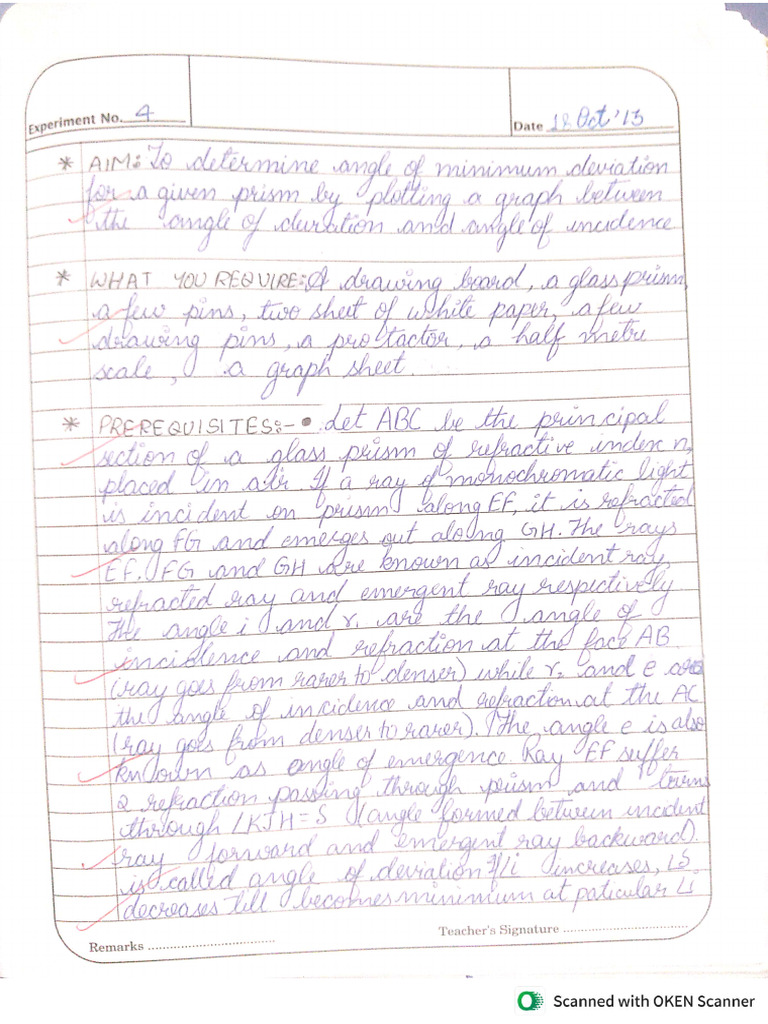 Experiment No. 4
Date 18 Oct '13
* AIM: To determine angle of minimum deviation
for a given prism by plotting a graph between
the angle of duration and angle of incidence
* WHAT YOU REQUIRE: A drawing board, a glass prism,
a few pins, two sheet of white paper, a few
drawing pins, a protactor, a half metre
scale, a graph sheet.
* PREREQUISITES:- • Let ABC be the principal
section of a glass prism of refractive index n,
placed in air. If a ray of monochromatic light
is incident on prism along EF, it is refracted
along FG and emerges out along GH. The rays
EF. FG and GH are known as incident ray
refracted ray and emergent ray respectively
The angle i and r, are the angle of
incidence and refraction at the face AB
(ray goes from rarer to denser) while r₂ and e are
the angle of incidence and refraction at the AC
(ray goes from denser to rarer). The angle e is also
known as angle of emergence. Ray EF suffer
2 refraction passing through prism and turns
through ∠KJH = S (angle formed between incident
ray forward and emergent ray backward).
is called angle of deviation If ∠i increases, ∠S
decreases till becomes minimum at paticular ∠i
Teacher's Signature
Remarks
Scanned with OKEN Scanner